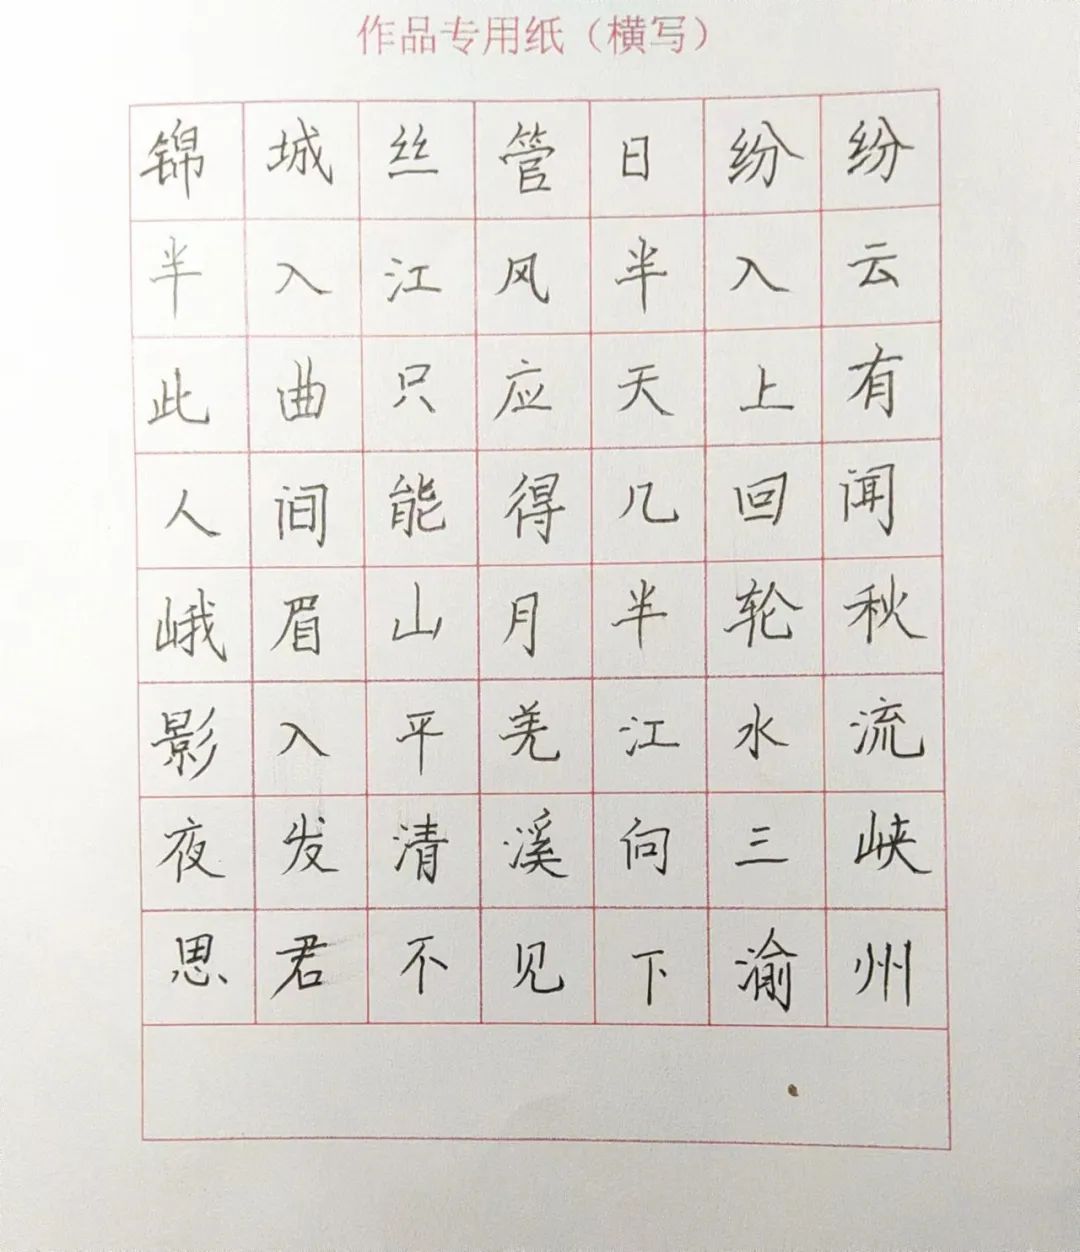 作品专用纸（横写）
锦城丝管日纷纷
半入江风半入云
此曲只应天上有
人间能得几回闻
峨眉山月半轮秋
影入平羌江水流
夜发清溪向三峡
思君不见下渝州